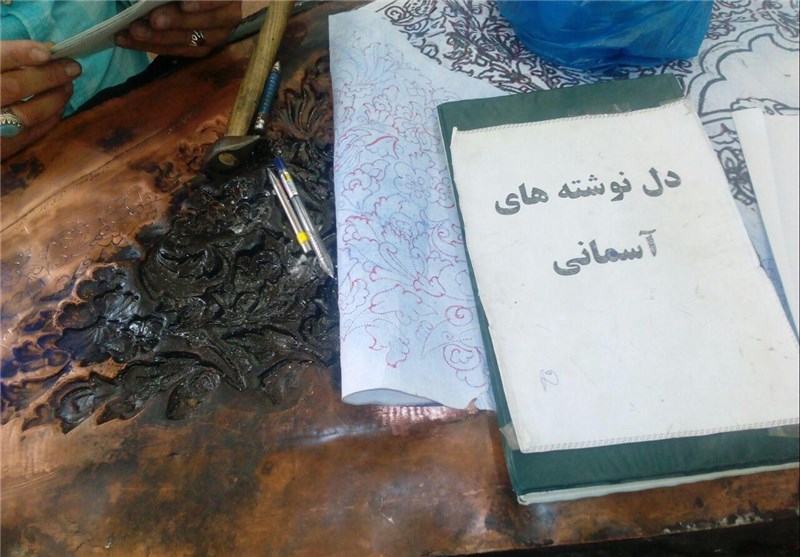 دل نوشته های
آسمانی